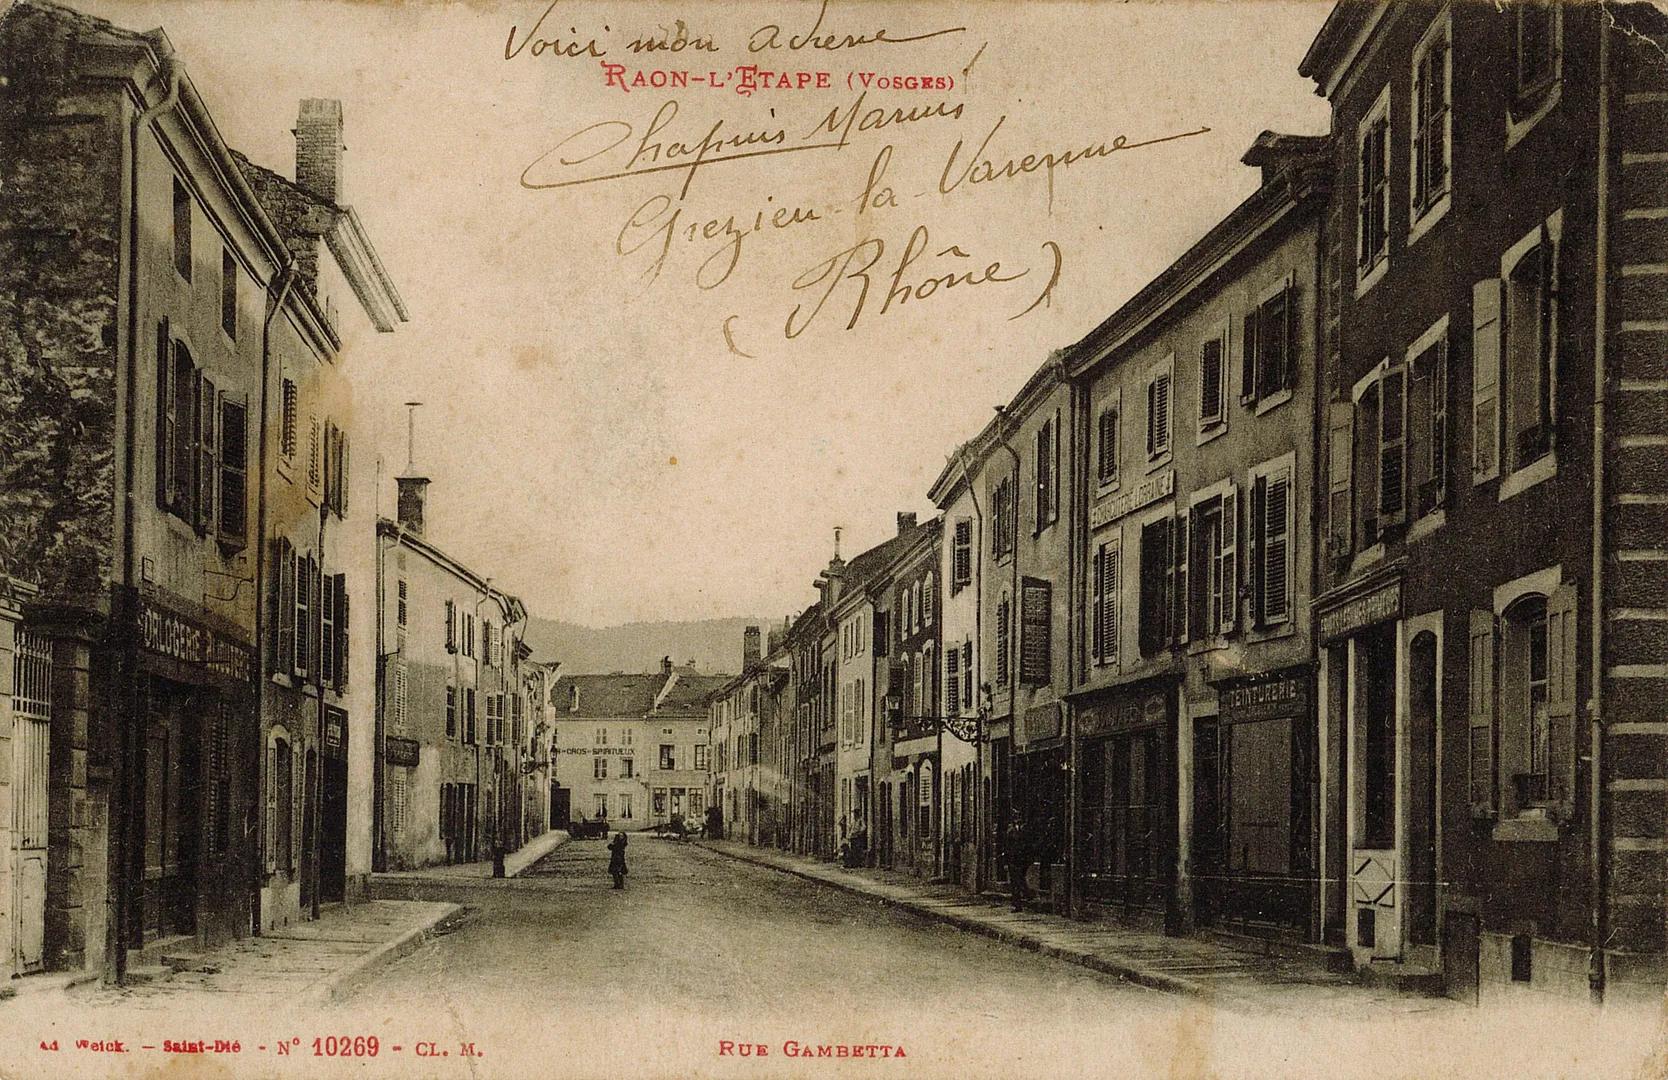 Voici mon adresse
RAON-L'ETAPE (VOSGES)
Chapuis Marius
Grezieu-la-Varenne
(Rhône)
HORLOGERIE
LORRAINE
TEINTURERIE
GROS SPIRITUEUX
Ad Weick. — Saint-Dié - N° 10269 - CL. M.
RUE GAMBETTA